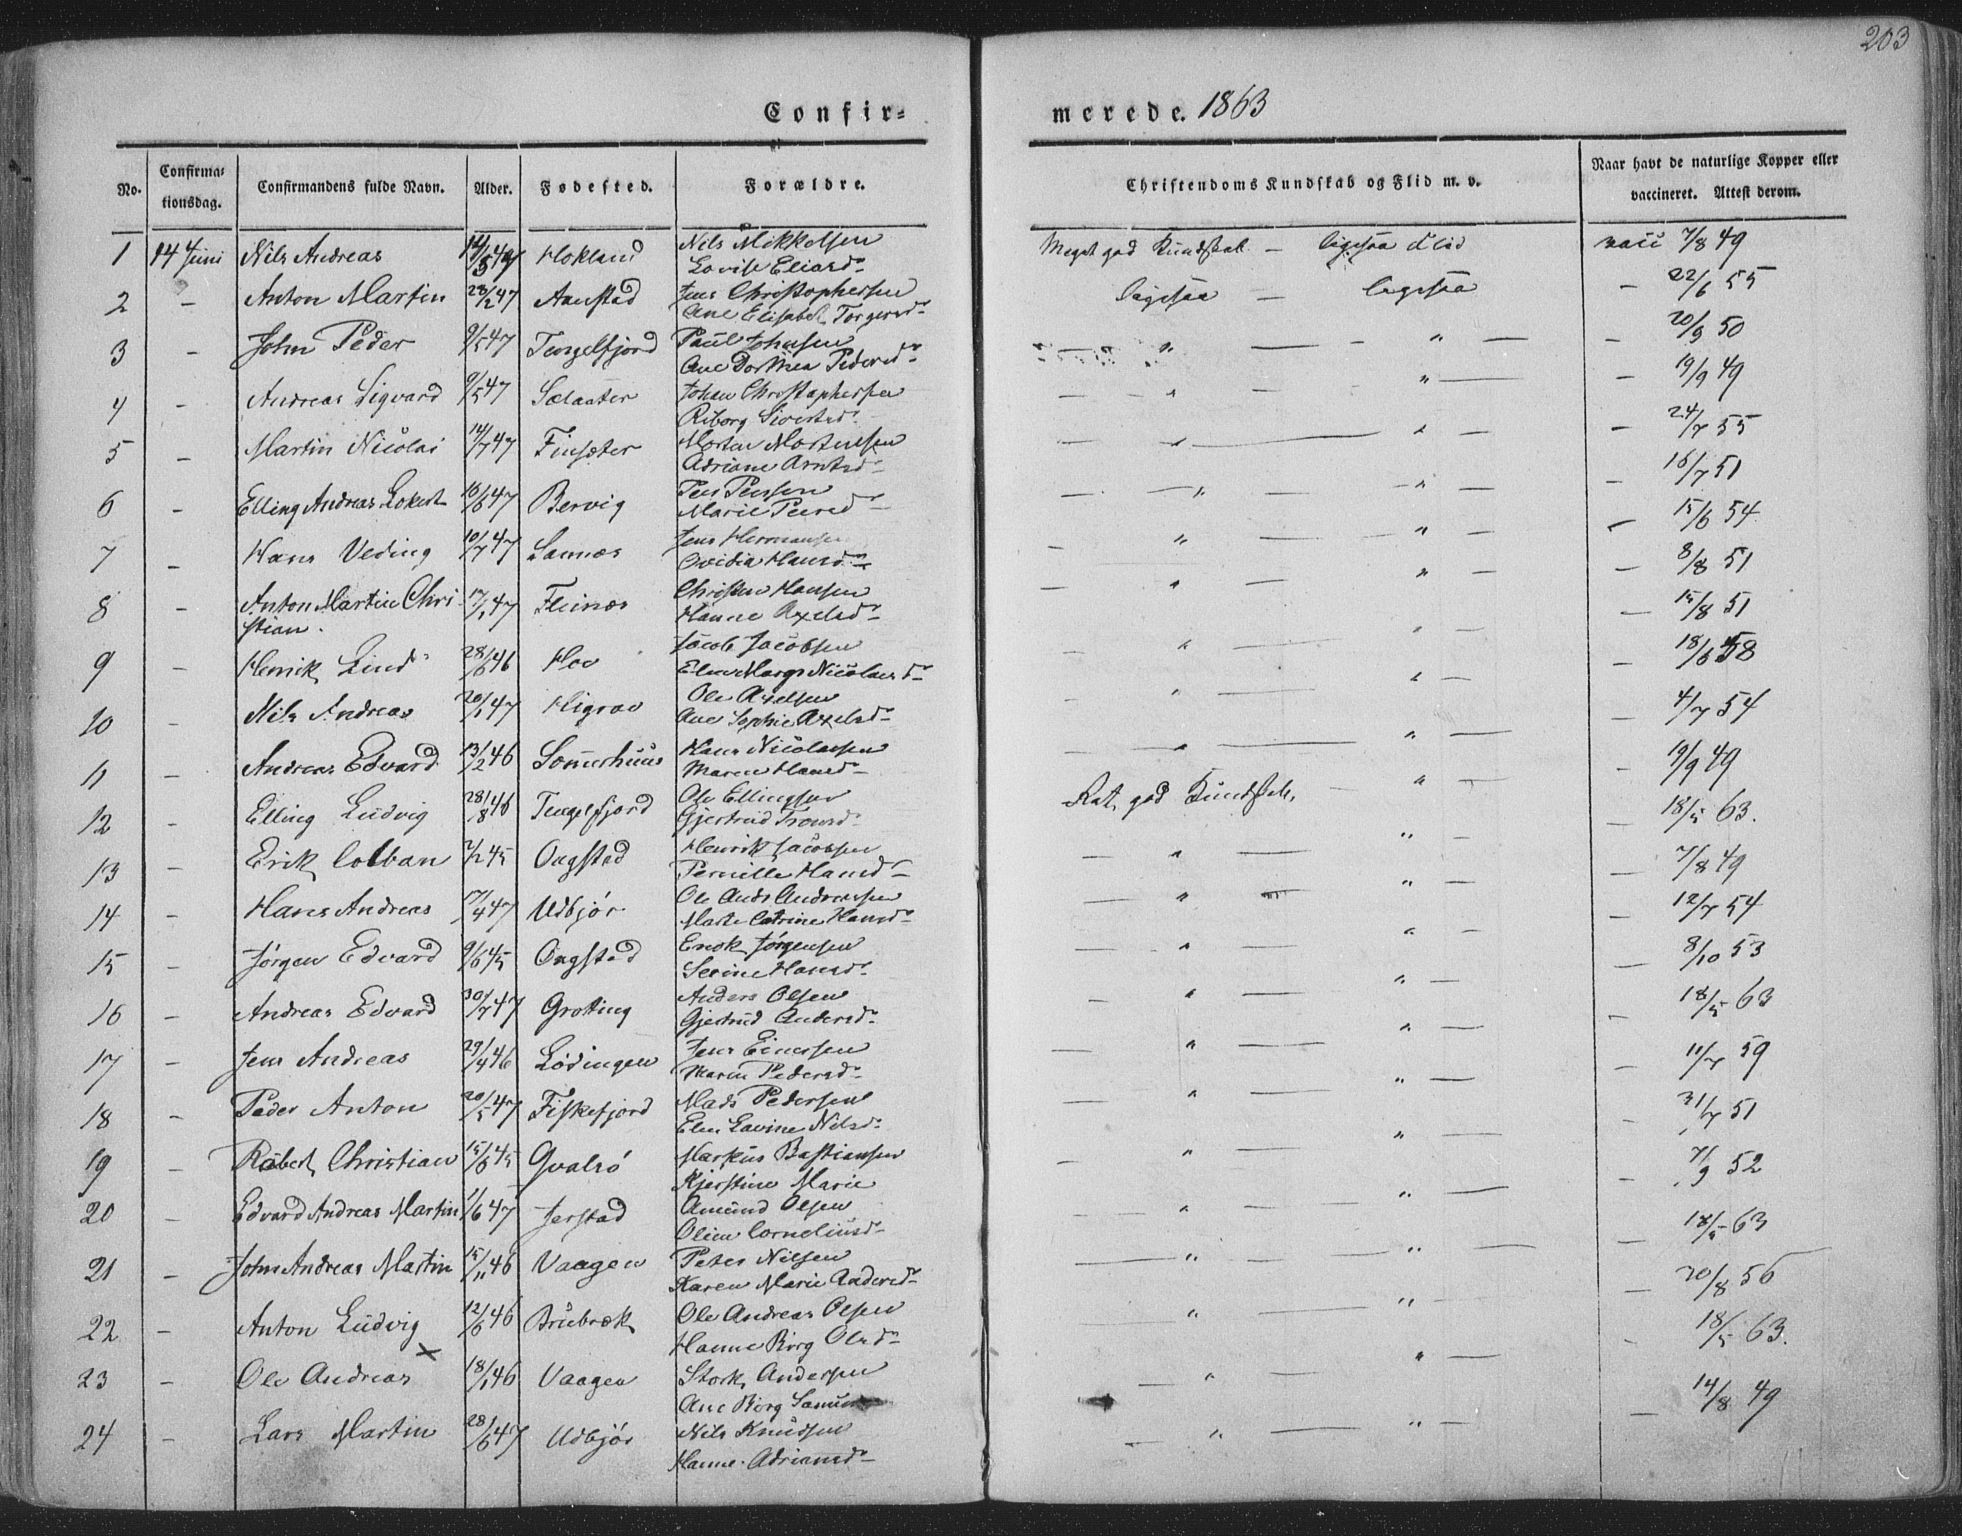 203
Confir= merede. 1863
No. Confirma=tionsdag. Confirmandens fulde Navn. Alder. Fødested. Forældre. Christendoms Kundskab og Flid m. v. Naar havt de naturlige Kopper eller vaccineret. Attest derom.
1 14 Juni Nils Andreas 14/5 47 Hokland Nils Mikkelsen Meget god Kundskab — ligesaa Flid vacc 7/8 49
Lovise Eliasd-
2 - Anton Martin 28/2 47 Aanstad Jens Christophersen ligesaa — ligesaa — 22/6 55
Ane Elisabet Torgersd-
3 - John Peder 9/5 47 Tengelfjord Paul Johnsen — " — " — — 20/9 50
Ane Dorthea Pedersd-
4 - Andreas Sigvard 9/5 47 Salaater Johan Christophersen — " — " — — 19/9 49
Riborg Sivertsd-
5 - Martin Nicolai 14/7 47 Finsæter Morten Mortensen — " — " — — 24/7 55
Adriane Arntsd-
6 - Elling Andreas Lokert 16/6 47 Bervig Peer Peersen — " — " — — 16/7 51
Marie Peersd-
7 - Hans Veding 10/7 47 Sannæs Jens Hermansen — " — " — — 15/6 54
Ovidia Hansd-
8 - Anton Martin Chri- 17/1 47 Fleinæs Christen Hansen — " — " — — 8/8 51
stian. Hanne Axelsd-
— 15/8 51
9 - Henrik Lind 28/6 46 Hov Jacob Jacobsen — " — " — 18/6 58
Elen Margr Nicolaisd-
10 - Nils Andreas 20/1 47 Higrav Ole Axelsen — " — " — — 4/7 54
Ane Sophie Axelsd-
11 - Andreas Edvard 13/2 46 Sommerhuus Hans Nicolaisen — " — " — — 19/9 49
Maren Hansd-
12 - Elling Ludvig 28/8 46 Tengelfjord Ole Ellingsen Ret god Kundskab. — " — — 18/5 63.
Gjertrud Tronsd-
13 - Erik Colban 2/2 45 Ongstad Henrik Jacobsen — " — " — — 7/8 49
Pernille Hansd-
14 - Hans Andreas 17/4 47 Udbjør Ole Ands Andreassen — " — " — — 12/7 54
Marte Catrine Hansd-
15 - Jørgen Edvard 9/6 45 Ongstad Enok Jørgensen — " — " — — 8/10 53
Serine Hansd-
16 - Andreas Edvard 30/7 47 Grotting Anders Olsen — " — " — — 18/5 63
Gjertrud Andersd-
17 - Jens Andreas 29/4 46 Lødingen Jens Einersen — " — " — — 11/7 59
Maren Pedersd-
18 - Peder Anton 20/5 47 Fiskefjord Mads Pedersen — " — " — 31/7 51
Elen Lavine Nilsd-
19 - Robert Christian 15/6 45 Qvalsø Markus Bastiansen — " — " — 7/9 52
Kjerstine Marie
20 - Edvard Andreas Martin 1/6 47 Jerstad Amund Olsen — " — " — — 18/5 63
Oline Corneliusd-
21 - John Andreas Martin 15/11 46 Vaagen Peter Nilsen — " — " — — 20/8 56
Karen Marie Andersd-
22 - Anton Ludvig 12/6 46 Brubræk Ole Andreas Olsen — " — " — — 18/5 63.
Hanne Birg Olsd-
23 - Ole Andreas 18/1 46 Vaagen Stork Andersen — " — " — 14/8 49
Ane Borg
24 - Lars Martin 28/6 47 Udbjør Nils Knudsen — " — " — —
Hanne Adriansd-